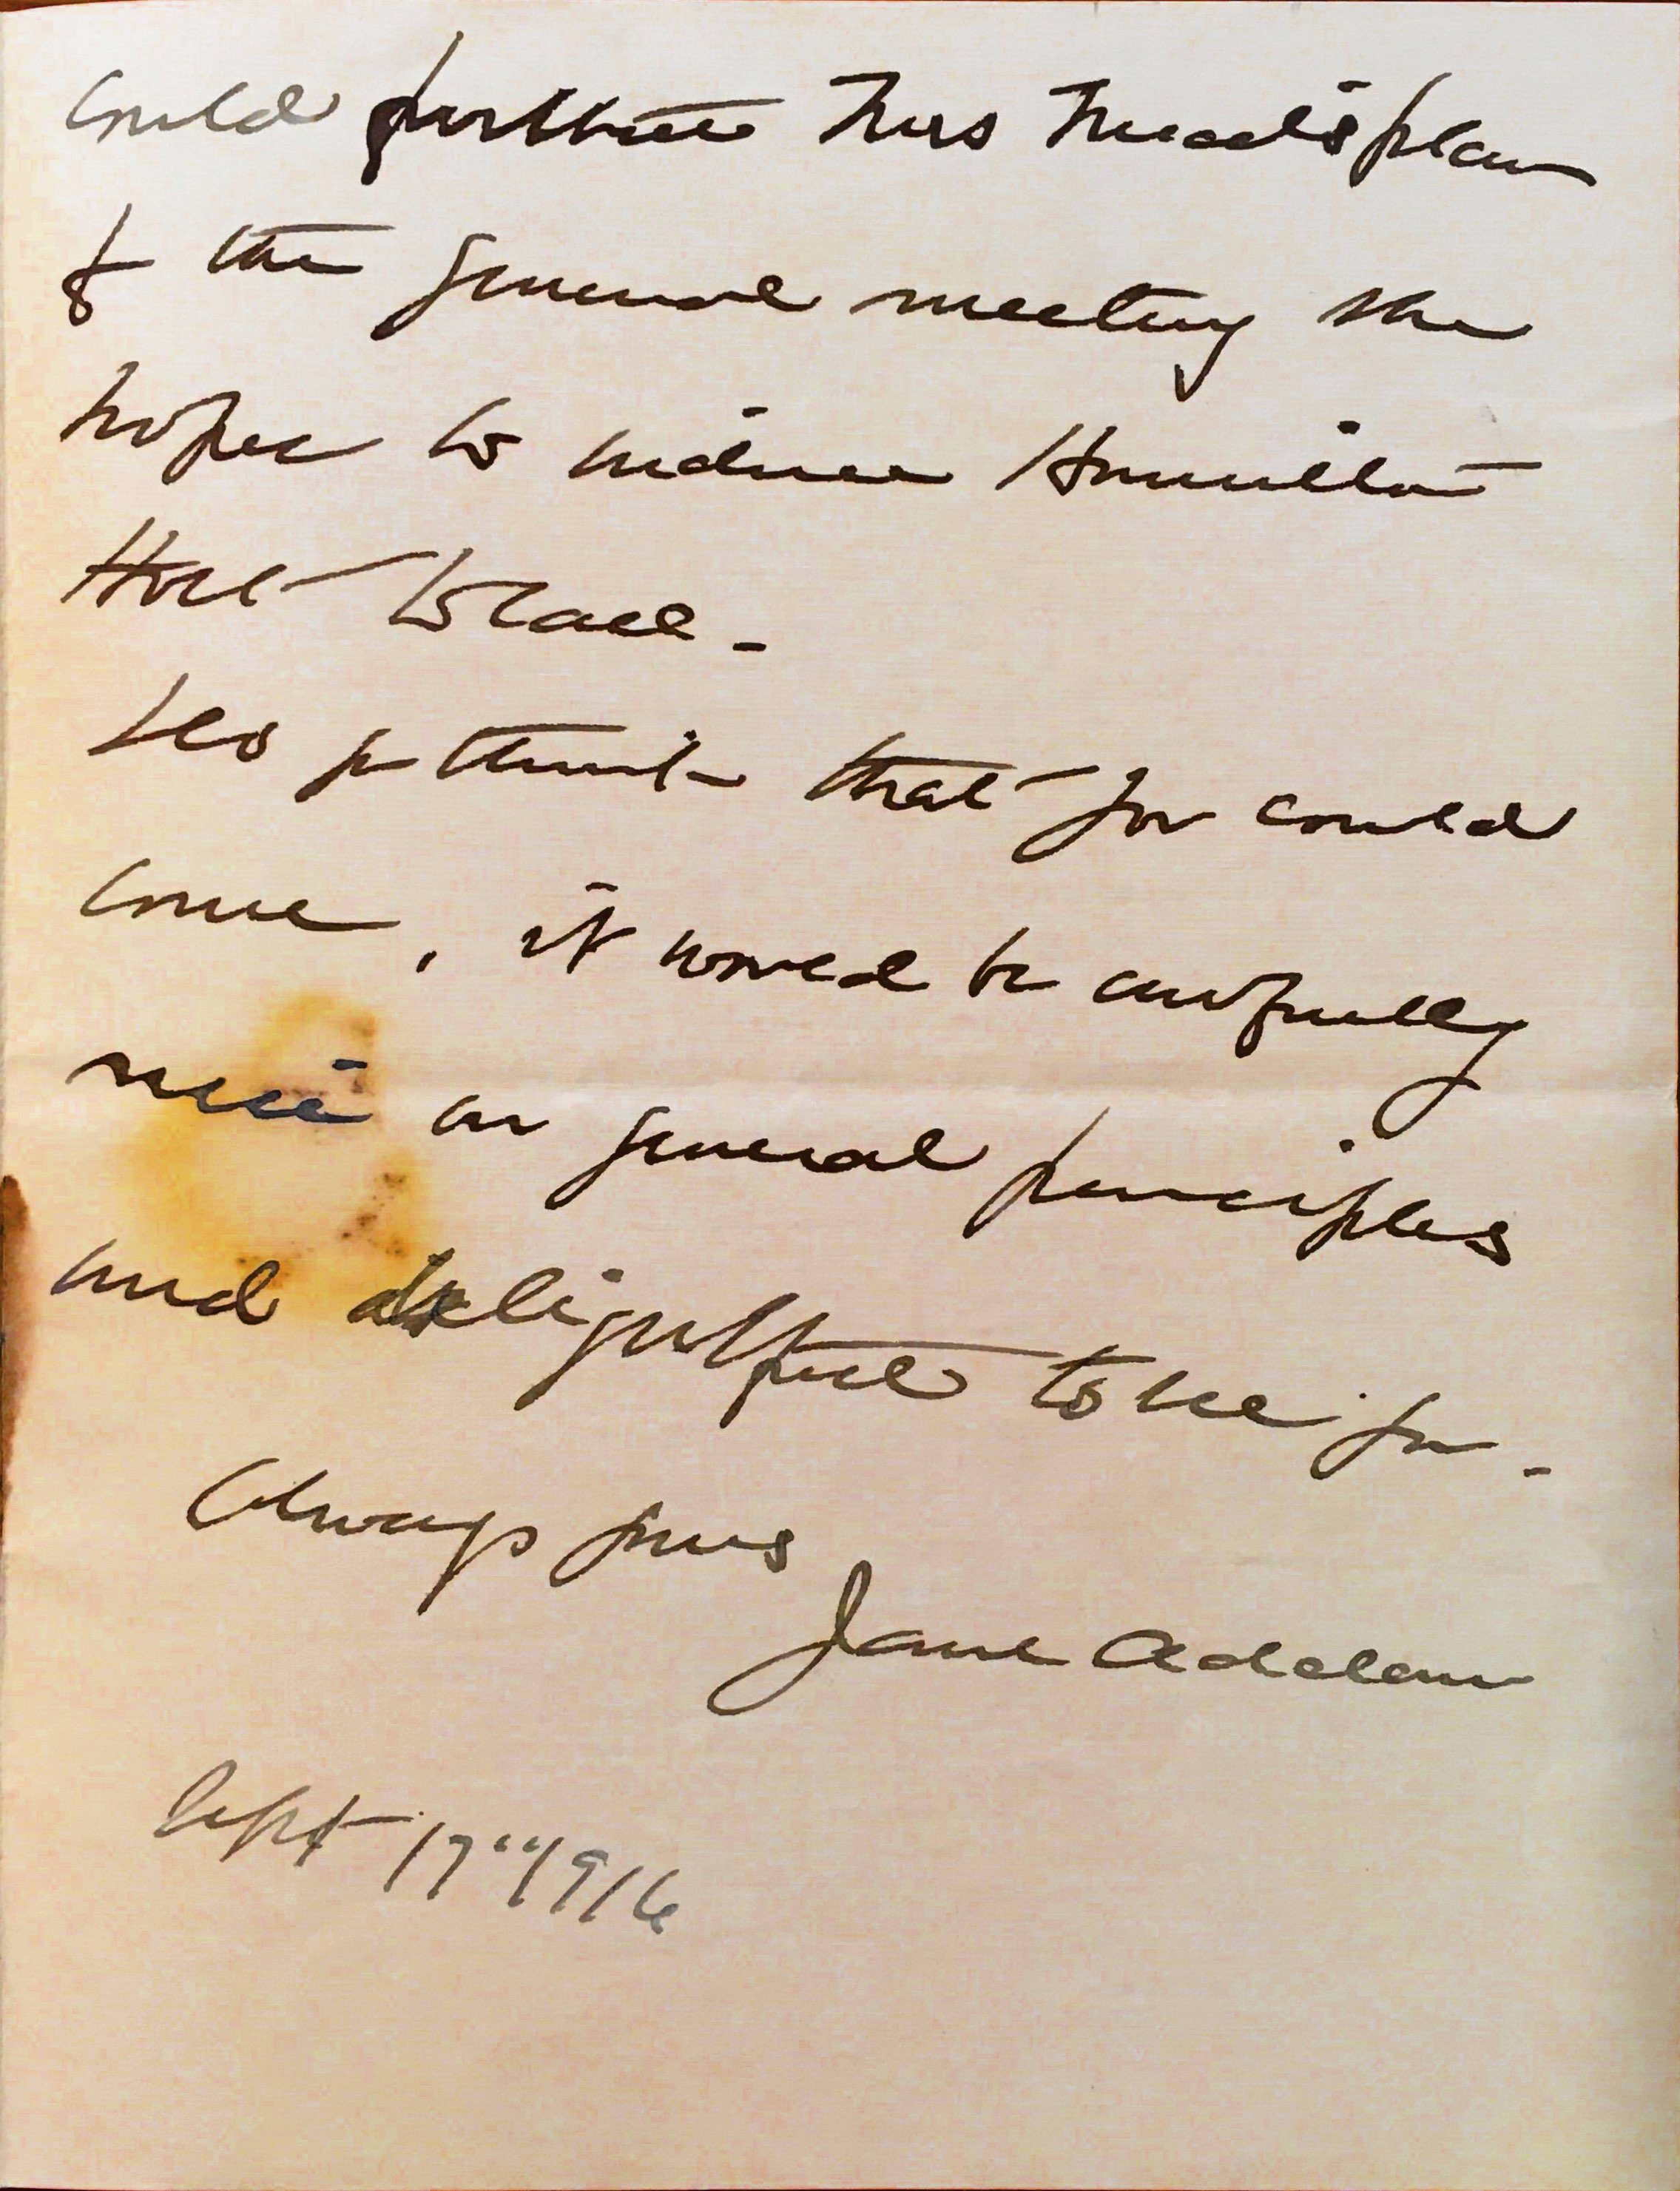 could further Mrs Mead's plan
of the general meeting she
hopes to induce Hamilton
Holt to call -
Do you think that you could
come, it would be awfully
nice on general principles
and delightful to see you -
Always yours
Jane Addams
Sept 17" 1916